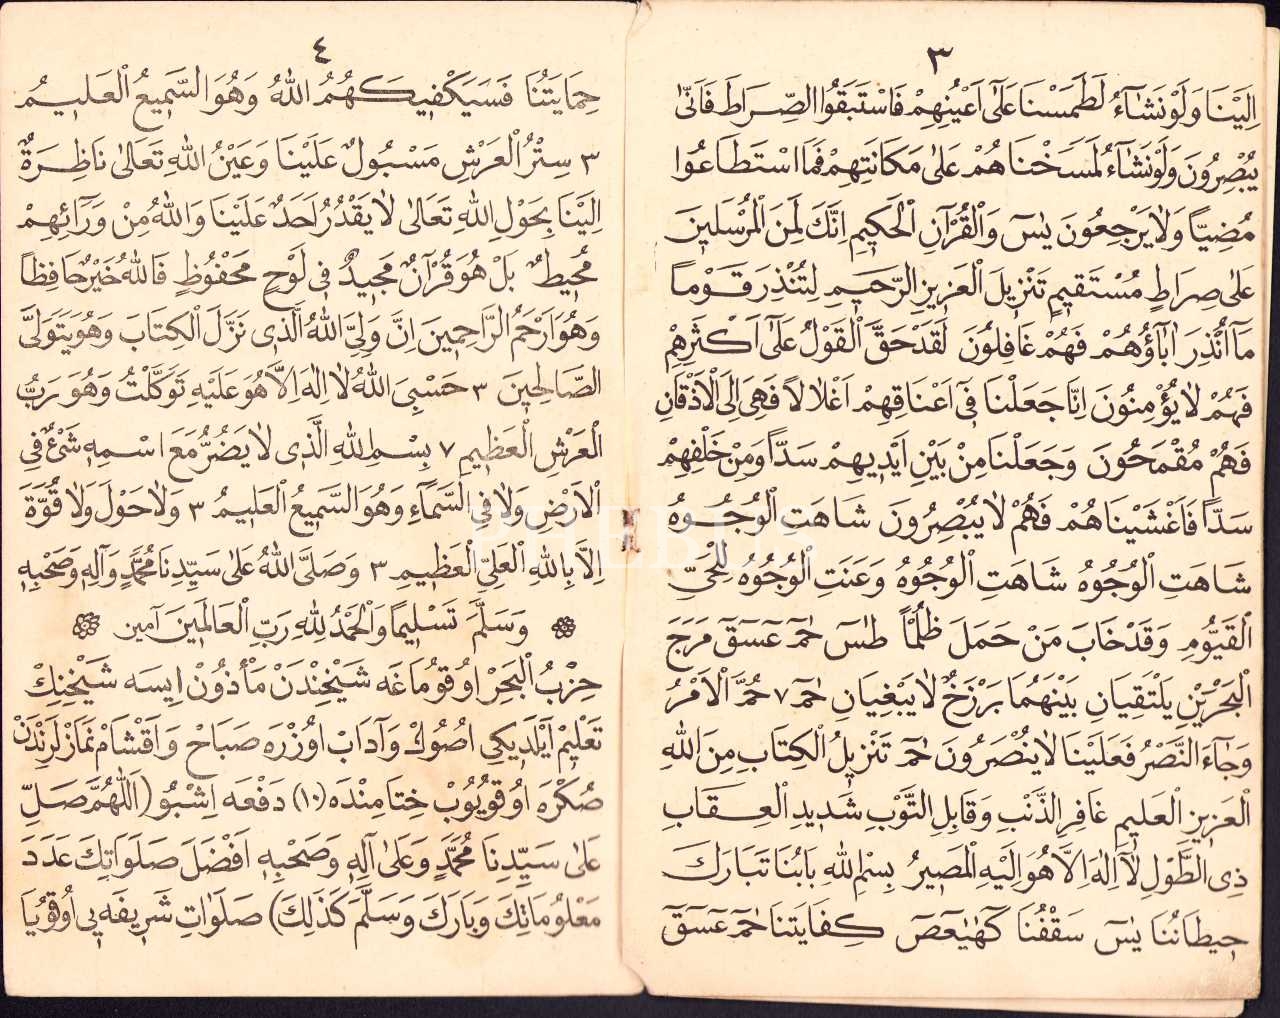 ٣
اِلَيْنَا وَلَوْ نَشَآءُ لَطَمَسْنَا عَلٰٓى اَعْيُنِهِمْ فَاسْتَبَقُوا الصِّرَاطَ فَاَنّٰى
يُبْصِرُونَ وَلَوْ نَشَآءُ لَمَسَخْنَاهُمْ عَلٰى مَكَانَتِهِمْ فَمَا اسْتَطَاعُوا
مُضِيًّا وَلَا يَرْجِعُونَ يٰسٓ وَالْقُرْآنِ الْحَكِيمِ اِنَّكَ لَمِنَ الْمُرْسَلِينَ
عَلٰى صِرَاطٍ مُسْتَقِيمٍ تَنْزِيلَ الْعَزِيزِ الرَّحِيمِ لِتُنْذِرَ قَوْمًا
مَآ اُنْذِرَ اٰبَآؤُهُمْ فَهُمْ غَافِلُونَ لَقَدْ حَقَّ الْقَوْلُ عَلٰٓى اَكْثَرِهِمْ
فَهُمْ لَا يُؤْمِنُونَ اِنَّا جَعَلْنَا فِىٓ اَعْنَاقِهِمْ اَغْلَالًا فَهِىَ اِلَى الْاَذْقَانِ
فَهُمْ مُقْمَحُونَ وَجَعَلْنَا مِنْ بَيْنِ اَيْدِيهِمْ سَدًّا وَمِنْ خَلْفِهِمْ
سَدًّا فَاَغْشَيْنَاهُمْ فَهُمْ لَا يُبْصِرُونَ شَاهَتِ الْوُجُوهُ
شَاهَتِ الْوُجُوهُ شَاهَتِ الْوُجُوهُ وَعَنَتِ الْوُجُوهُ لِلْحَىِّ
الْقَيُّومِ وَقَدْ خَابَ مَنْ حَمَلَ ظُلْمًا طٰسٓ حٰمٓ عٓسٓقٓ مَرَجَ
الْبَحْرَيْنِ يَلْتَقِيَانِ بَيْنَهُمَا بَرْزَخٌ لَا يَبْغِيَانِ حٰمٓ ٧ حُمَّ الْاَمْرُ
وَجَآءَ النَّصْرُ فَعَلَيْنَا لَا يُنْصَرُونَ حٰمٓ تَنْزِيلُ الْكِتَابِ مِنَ اللّٰهِ
الْعَزِيزِ الْعَلِيمِ غَافِرِ الذَّنْبِ وَقَابِلِ التَّوْبِ شَدِيدِ الْعِقَابِ
ذِى الطَّوْلِ لَآ اِلٰهَ اِلَّا هُوَ اِلَيْهِ الْمَصِيرُ بِسْمِ اللّٰهِ بَابُنَا تَبَارَكَ
حِيطَانُنَا يٰسٓ سَقْفُنَا كٓهٰيٰعٓصٓ كِفَايَتُنَا حٰمٓ عٓسٓقٓ
٤
حِمَايَتُنَا فَسَيَكْفِيكَهُمُ اللّٰهُ وَهُوَ السَّمِيعُ الْعَلِيمُ
٣ سِتْرُ الْعَرْشِ مَسْبُولٌ عَلَيْنَا وَعَيْنُ اللّٰهِ تَعَالٰى نَاظِرَةٌ
اِلَيْنَا بِحَوْلِ اللّٰهِ تَعَالٰى لَا يَقْدُرُ اَحَدٌ عَلَيْنَا وَاللّٰهُ مِنْ وَرَآئِهِمْ
مُحِيطٌ بَلْ هُوَ قُرْآنٌ مَجِيدٌ فِى لَوْحٍ مَحْفُوظٍ فَاللّٰهُ خَيْرٌ حَافِظًا
وَهُوَ اَرْحَمُ الرَّاحِمِينَ اِنَّ وَلِيِّىَ اللّٰهُ الَّذِى نَزَّلَ الْكِتَابَ وَهُوَ يَتَوَلَّى
الصَّالِحِينَ ٣ حَسْبِىَ اللّٰهُ لَا اِلٰهَ اِلَّا هُوَ عَلَيْهِ تَوَكَّلْتُ وَهُوَ رَبُّ
الْعَرْشِ الْعَظِيمِ ٧ بِسْمِ اللّٰهِ الَّذِى لَا يَضُرُّ مَعَ اسْمِهِ شَىْءٌ فِى
الْاَرْضِ وَلَا فِى السَّمَآءِ وَهُوَ السَّمِيعُ الْعَلِيمُ ٣ وَلَا حَوْلَ وَلَا قُوَّةَ
اِلَّا بِاللّٰهِ الْعَلِىِّ الْعَظِيمِ ٣ وَصَلَّى اللّٰهُ عَلٰى سَيِّدِنَا مُحَمَّدٍ وَآلِهِ وَصَحْبِهِ
وَسَلَّمَ تَسْلِيمًا وَالْحَمْدُ لِلّٰهِ رَبِّ الْعَالَمِينَ آمين
حِزْبُ الْبَحِرْ اوُقوُمَاغَه شَيْخِنْدَنْ مَأْذُونْ اِيسَه شَيْخِنِكْ
تَعْلِيمْ اَيْلَدِيكِى اصُولْ وَآدَابْ اوُزْرَه صَبَاحْ وَاَقْشَامْ نَمَازْلَرِنْدَنْ
صُكْرَه اوُقوُيُوبْ خِتَامِنْدَه (١٠) دَفْعَه اِشْبُو (اَللّٰهُمَّ صَلِّ
عَلٰى سَيِّدِنَا مُحَمَّدٍ وَعَلٰى آلِهِ وَصَحْبِهِ اَفْضَلَ صَلَوَاتِكَ عَدَدَ
مَعْلُومَاتِكَ وَبَارَكَ وَسَلَّمَ كَذٰلِكَ) صَلَوَاتِ شَرِيفَه يِى اوُقوُيَا
PHEBUS